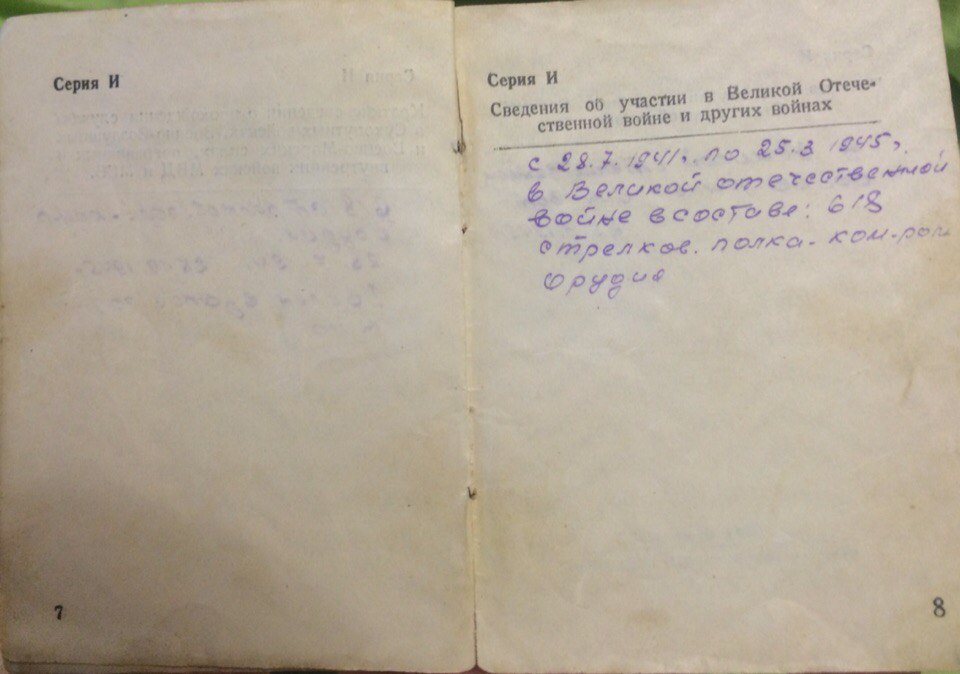 Серия И
7
Серия И
Сведения об участии в Великой Отече-
ственной войне и других войнах
с 28.7.1941г. по 25.3 1945г.
в Великой отечественной
войне в составе: 618
стрелков. полка - ком-ром
орудия
8